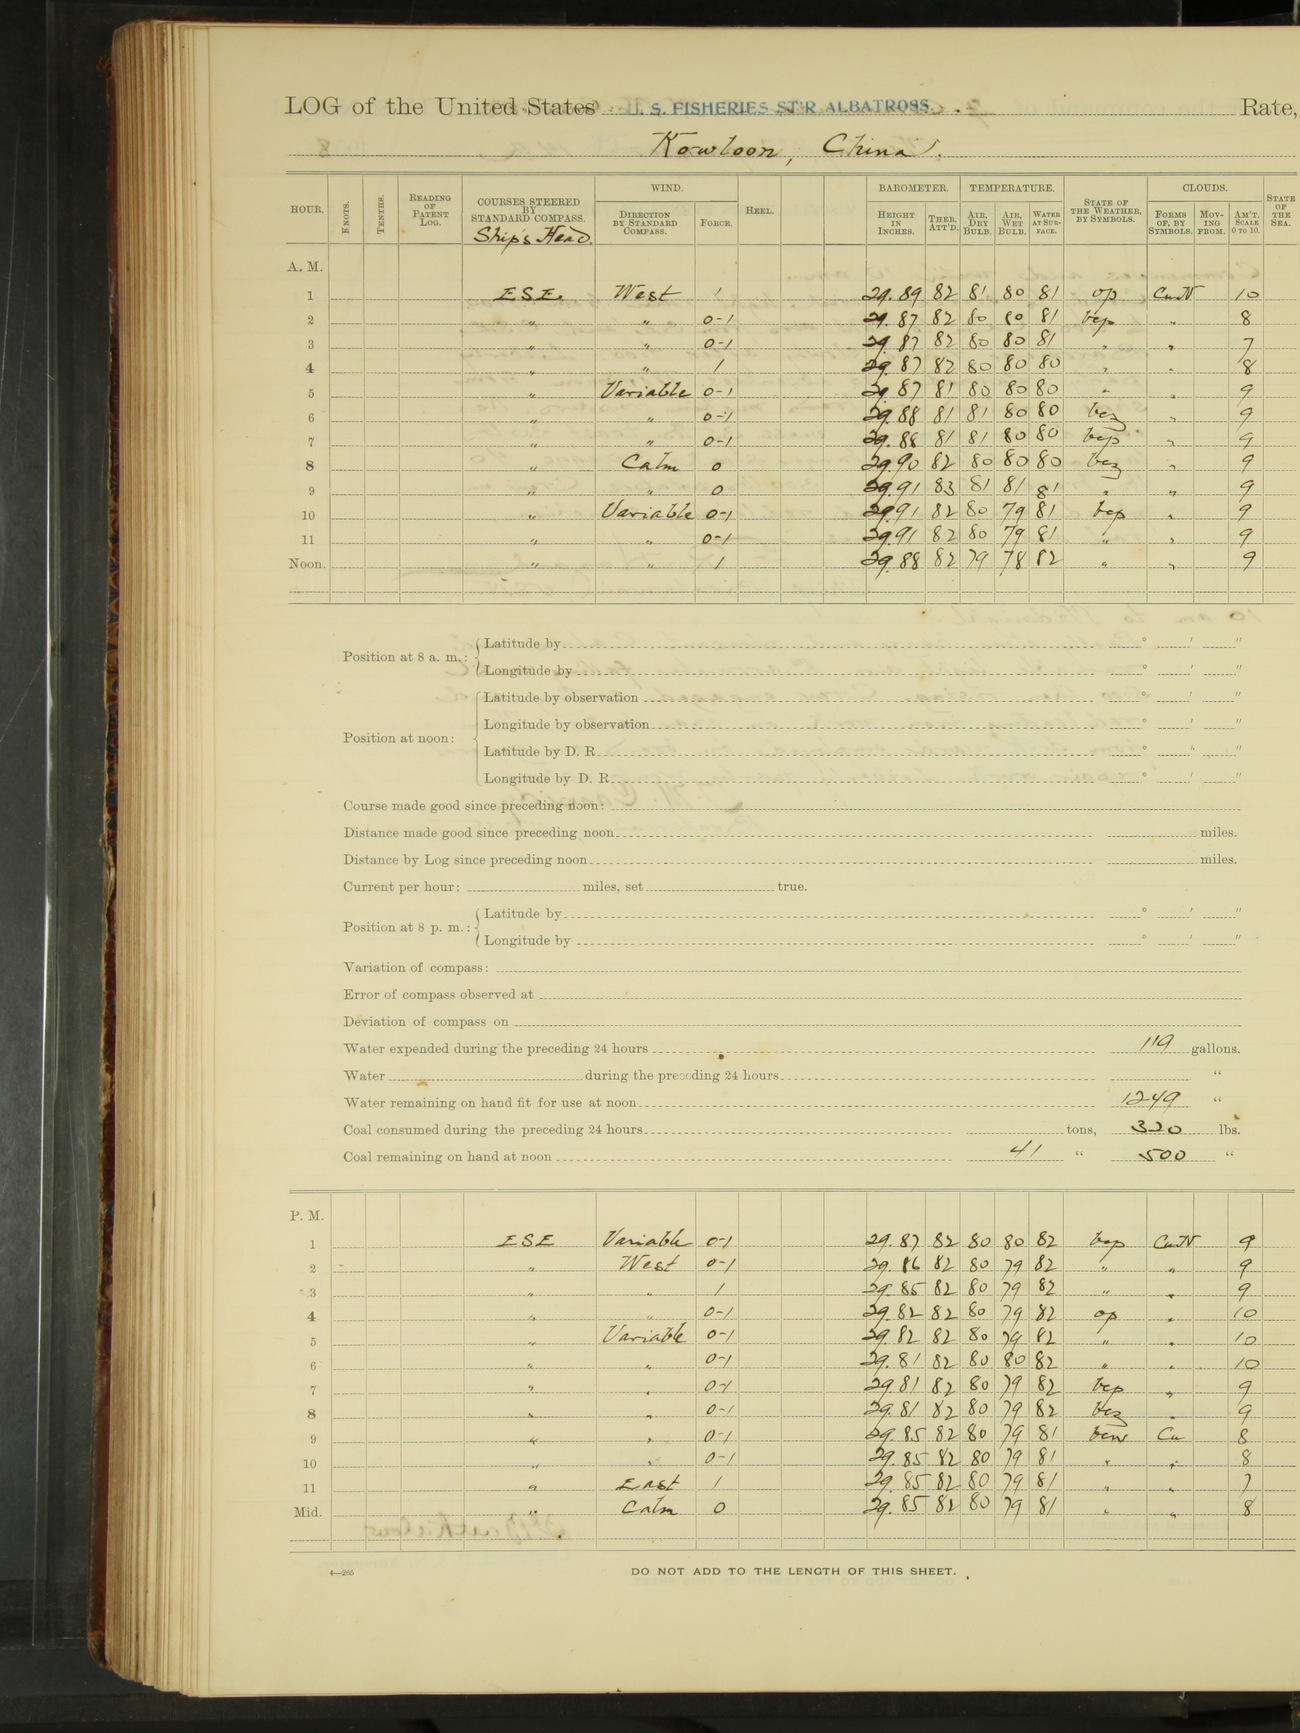 LOG of the United States U. S. FISHERIES ST'R ALBATROSS. Rate,
Kowloon, China.
HOUR. KNOTS. TENTHS. READING OF PATENT LOG. COURSES STEERED BY STANDARD COMPASS. Ship's Head. WIND. DIRECTION BY STANDARD COMPASS. FORCE. HEEL. BAROMETER. HEIGHT IN INCHES. THER. ATT'D. TEMPERATURE. AIR, DRY BULB. AIR, WET BULB. WATER AT SURFACE. STATE OF THE WEATHER, BY SYMBOLS. CLOUDS. FORMS OF, BY SYMBOLS. MOVING FROM. AM'T. SCALE 0 TO 10. STATE OF THE SEA.
A. M.
1 ESE. West 1 29.89 82 81 80 81 op Cu-N 10
2 " " 0-1 29.87 82 80 80 81 bcp " 8
3 " " 0-1 29.87 82 80 80 81 " " 7
4 " " 1 29.87 82 80 80 80 " " 8
5 " Variable 0-1 29.87 81 80 80 80 " " 9
6 " " 0-1 29.88 81 81 80 80 bcz " 9
7 " " 0-1 29.88 81 81 80 80 bcp " 9
8 " Calm 0 29.90 82 80 80 80 bcz " 9
9 " " 0 29.91 83 81 81 81 " " 9
10 " Variable 0-1 29.91 82 80 79 81 bcp " 9
11 " " 0-1 29.91 82 80 79 81 " " 9
Noon. " " 1 29.88 82 79 78 82 " " 9
Position at 8 a. m.: Latitude by ° ' "
Longitude by ° ' "
Position at noon: Latitude by observation ° ' "
Longitude by observation ° ' "
Latitude by D. R. ° ' "
Longitude by D. R. ° ' "
Course made good since preceding noon:
Distance made good since preceding noon miles.
Distance by Log since preceding noon miles.
Current per hour: miles, set true.
Position at 8 p. m.: Latitude by ° ' "
Longitude by ° ' "
Variation of compass:
Error of compass observed at
Deviation of compass on
Water expended during the preceding 24 hours 119 gallons.
Water during the preceding 24 hours "
Water remaining on hand fit for use at noon 1249 "
Coal consumed during the preceding 24 hours tons, 320 lbs.
Coal remaining on hand at noon 41 " 500 "
P. M.
1 ESE Variable 0-1 29.87 82 80 80 82 bcp Cu-N 9
2 " West 0-1 29.86 82 80 79 82 " " 9
3 " " 1 29.85 82 80 79 82 " " 9
4 " " 0-1 29.82 82 80 79 82 op " 10
5 " Variable 0-1 29.82 82 80 79 82 " " 10
6 " " 0-1 29.81 82 80 80 82 " " 10
7 " " 0-1 29.81 82 80 79 82 bcp " 9
8 " " 0-1 29.81 82 80 79 82 bcz " 9
9 " " 0-1 29.85 82 80 79 81 Cu 8
10 " " 0-1 29.85 82 80 79 81 " " 8
11 " East 1 29.85 82 80 79 81 " " 7
Mid. " Calm 0 29.85 82 80 79 81 " " 8
4—265 DO NOT ADD TO THE LENGTH OF THIS SHEET.